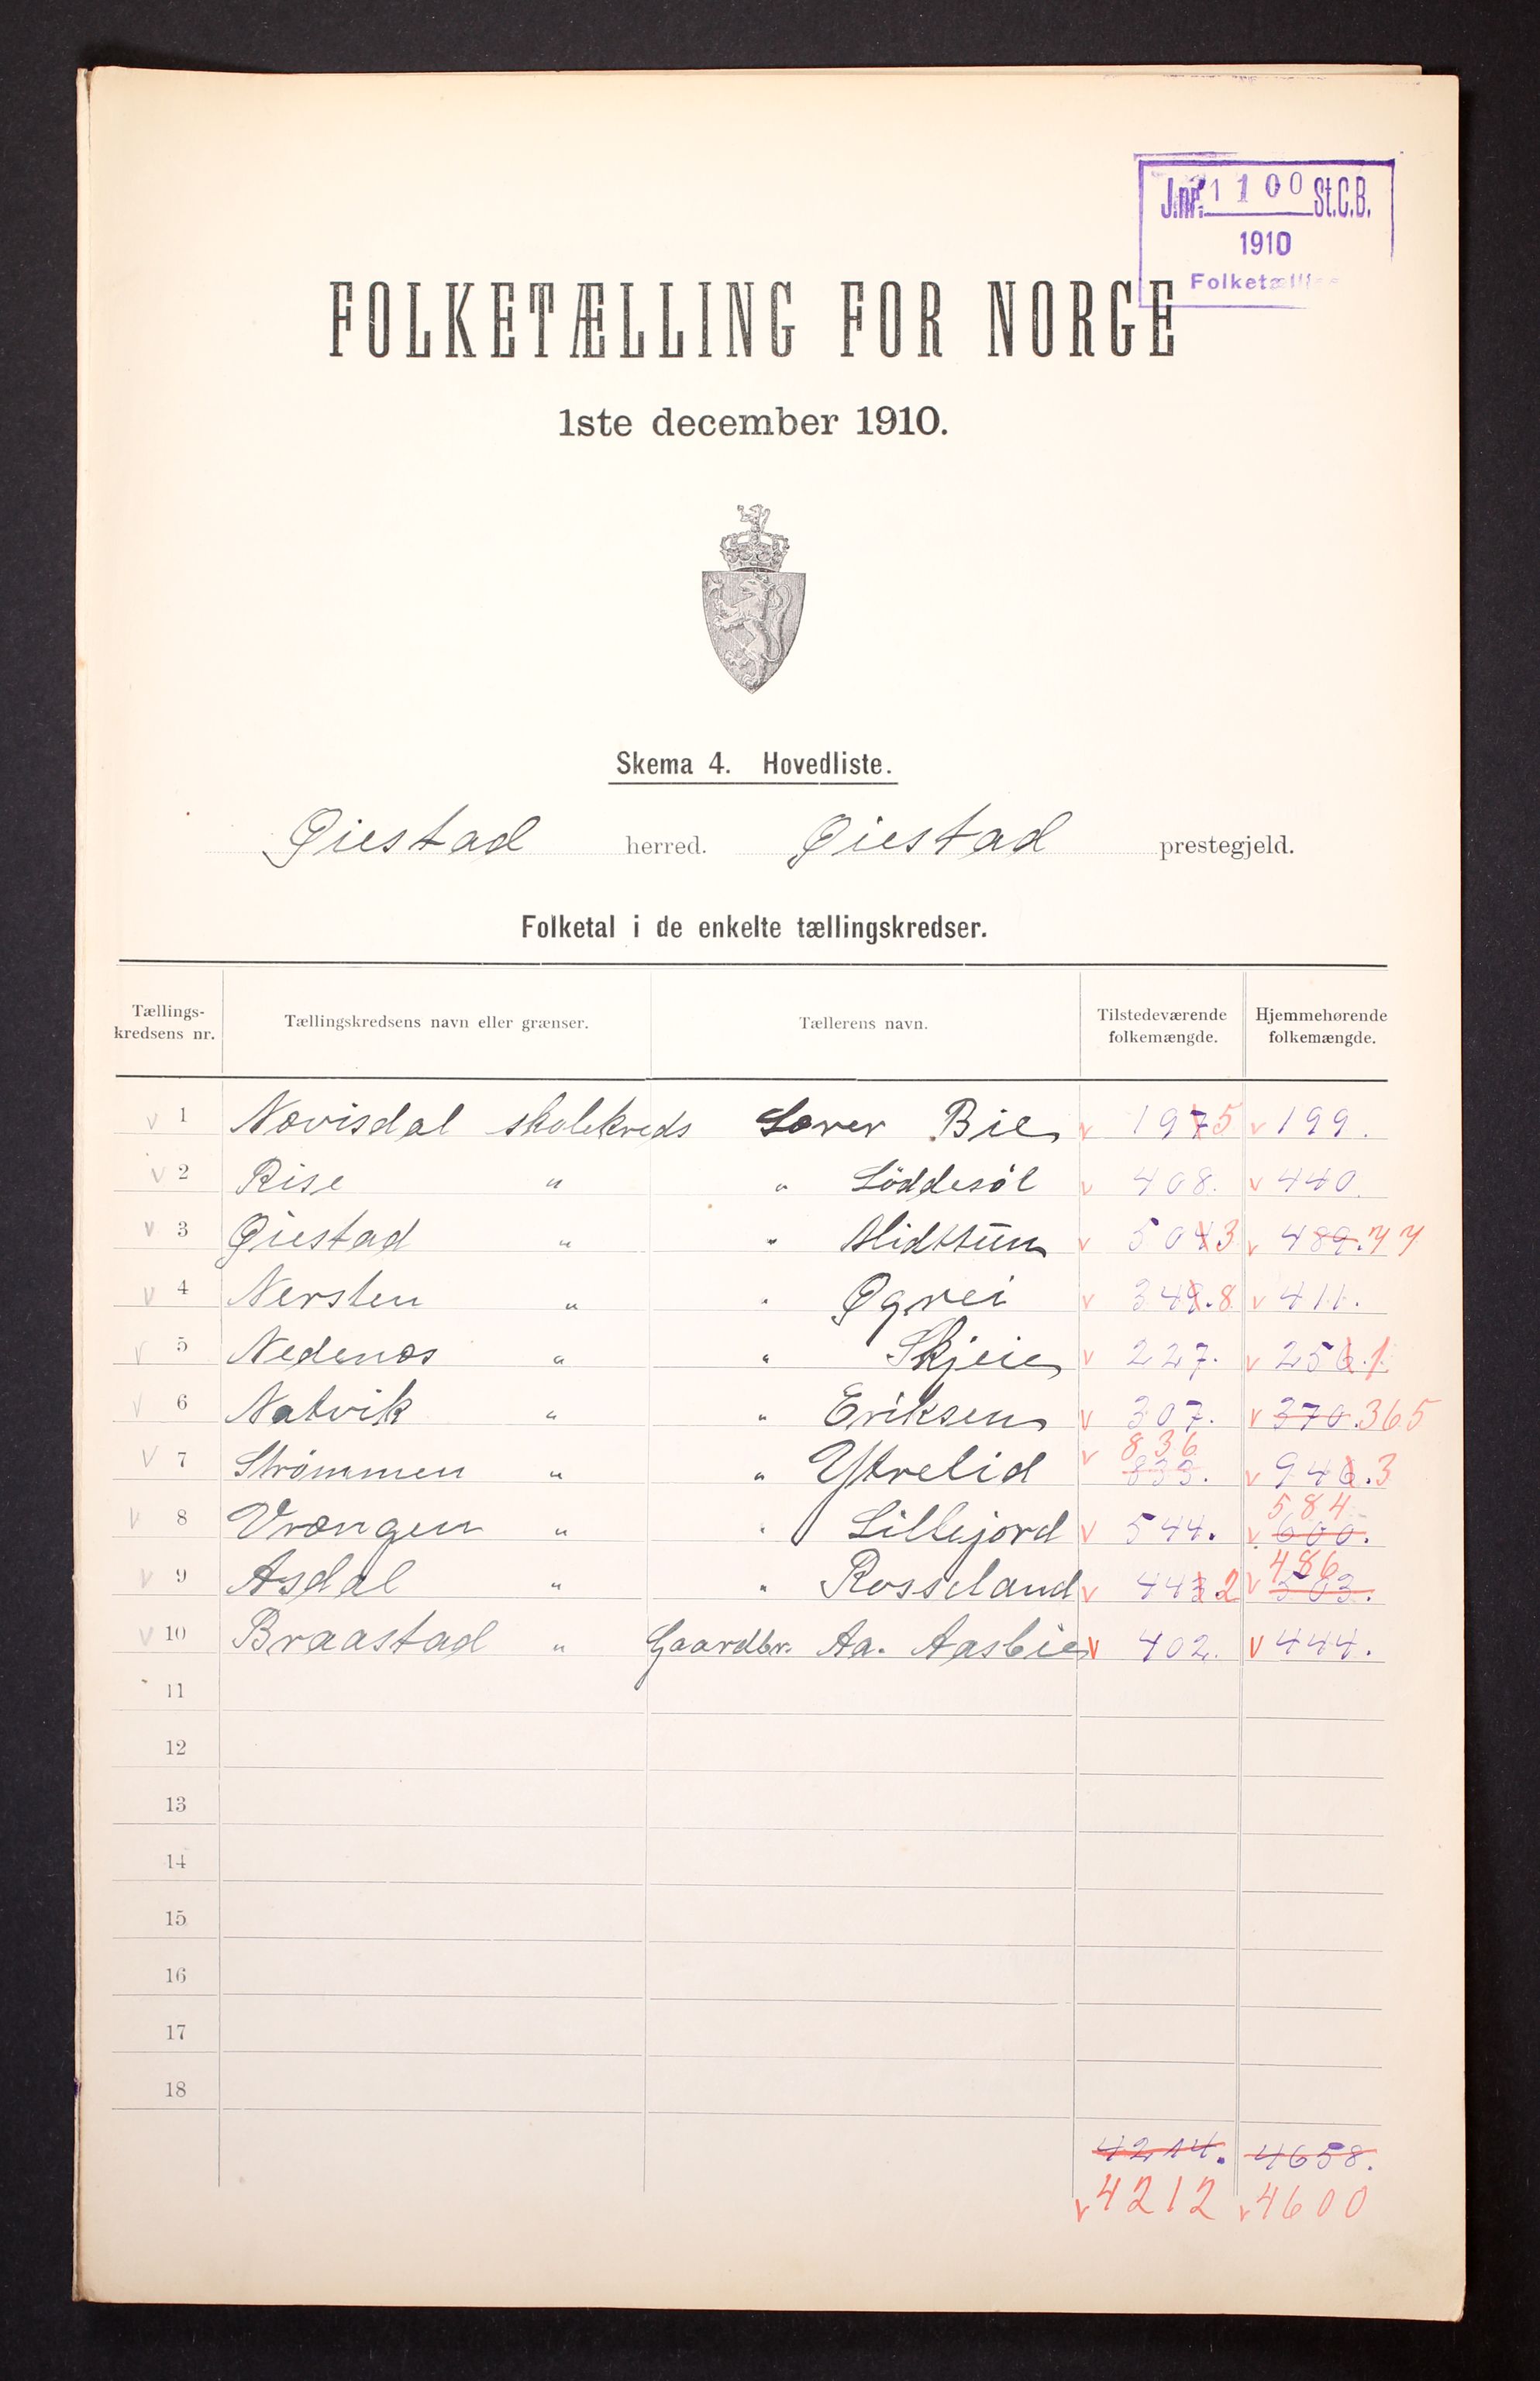 J.nr. 1100 St.C.B.
1910
Folketælling
FOLKETÆLLING FOR NORGE
1ste december 1910.
Skema 4. Hovedliste.
Øiestad herred. Øiestad prestegjeld.
Folketal i de enkelte tællingskredser.
Tællings- kredsens nr. Tællingskredsens navn eller grænser. Tællerens navn. Tilstedeværende folkemængde. Hjemmehørende folkemængde.
v 1 Nævisdal skolekreds Lærer Bie v 1975 v 199.
v 2 Rise " " Löddesöl v 408. v 440.
v 3 Øiestad " " Midttun v 5043 v 489. 77
v 4 Nersten " " Øgrei v 349.8 v 411.
v 5 Nedenæs " " Skjeie v 227. v 256.1
v 6 Natvik " " Eriksen v 307. v 370. 365
v 7 Strømmen " " Ytrelid v 833. 836 v 946.3
v 8 Vrængen " " Lillejord v 544. v 600. 584
v 9 Asdal " " Rosseland v 443.2 v 503. 486
v 10 Braastad " Gaardbr. Aa. Aasbie v 402. v 444.
11
12
13
14
15
16
17
18
4214. 4658.
v 4212 v 4600